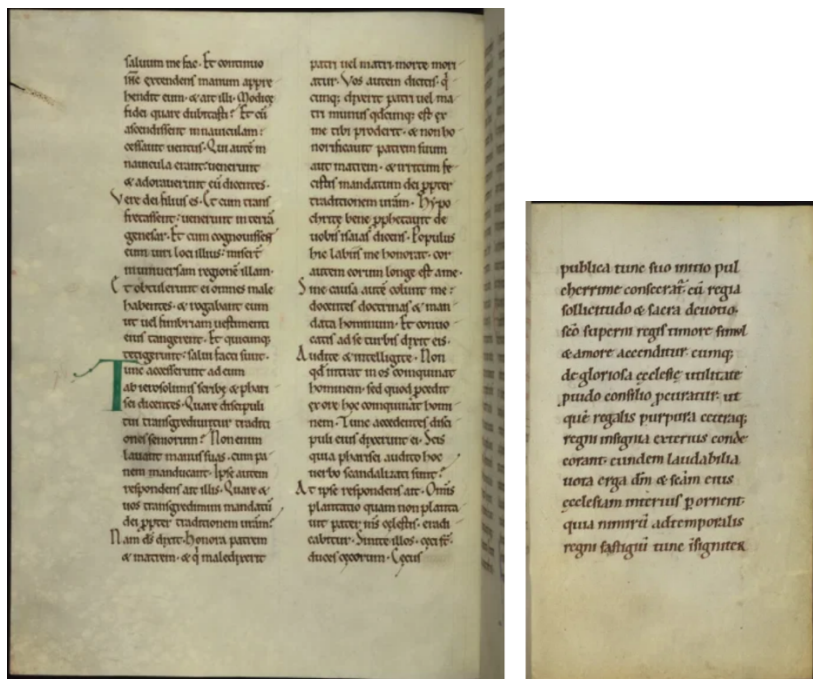 saluum me fac. Et continuo
ih̅c extendens manum appre
hendit eum. & ait illi. Modicę
fidei quare dubitasti? Et cū
ascendissent in nauiculam:
cessauit uentus. Qui autē in
nauicula erant: uenerunt
& adorauerunt eū dicentes.
Vere dei filius es. Et cum trans
fretassent: uenerunt in terrā
genesar. Et cum cognouissent
eum uiri loci illius: miserunt
in uniuersam regionē illam.
Et obtulerunt ei omnes male
habentes. & rogabant eum
ut uel fimbriam uestimenti
eius tangerent. Et quicumq;
tetigerunt: salui facti sunt.
Tunc accesserunt ad eum
ab ierosolimis scribę & phari
sei dicentes. Quare discipuli
tui transgrediuntur traditi
ones seniorum? Non enim
lauant manus suas. cum pa
nem manducant. Ipse autem
respondens ait illis. Quare &
uos transgredimini mandatū
dei ꝓpter traditionem ur̅am?
Nam ds̅ dixit. Honora patrem
& matrem. & q̇ maledixerit
patri uel matri morte mori
atur. Vos autem dicitis. q̇
cunq; dixerit patri uel ma
tri munus qdcunq; est ex
me tibi proderit. & non ho
norificauit patrem suum
aut matrem. & irritum fe
cistis mandatum dei ꝓpter
traditionem ur̅am. Hypo
chritę bene ꝓphetauit de
uobis isaias dicens. Populus
hic labiis me honorat. cor
autem eorum longe est a me.
Sine causa autē colunt me:
docentes doctrinas & man
data hominum. Et conuo
catis ad se turbis dixit eis.
Audite & intelligite. Non
qd intrat in os coinquinat
hominem. sed quod ꝓcedit
ex ore hoc coinquinat homi
nem. Tunc accedentes disci
puli eius dixerunt ei. Scis
quia pharisei audito hoc
uerbo scandalizati sunt?
At ipse respondens ait. Omīs
plantatio quam non planta
uit pater m̅s cęlestis. eradi
cabitur. Sinite illos. cęci st̅.
duces cęcorum. Cęcus
publica tunc suo initio pul
cherrime consecrat̄. cū regia
sollicitudo & sacra deuotio.
sc̅o superni regis timore simul
& amore accenditur. cumq;
de gloriosa ęcclesię utilitate
ꝓuido consilio ꝑtractatur. ut
quę regalis purpura cetteraq;
regni insignia exterius conde
corant. eundem laudabilia
uota erga dm̅ & sc̅am eius
ęcclesiam interius ꝑornent.
quia nimirū ad temporalis
regni fastigiū tunc īsigniter